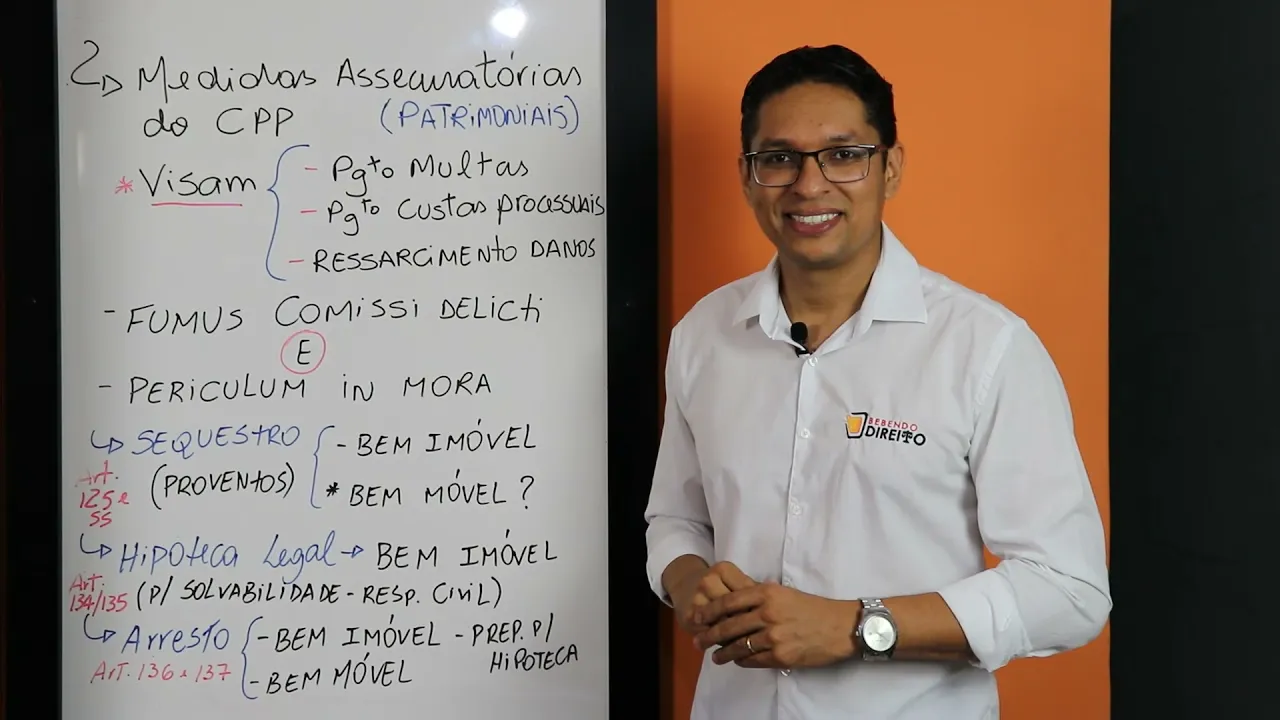 2 Medidas Assecuratórias
do CPP (PATRIMONIAIS)
* Visam
- Pgto Multas
- Pgto Custas processuais
- RESSARCIMENTO DANOS
- FUMUS COMISSI DELICTI
E
- PERICULUM IN MORA
SEQUESTRO - BEM IMÓVEL
Art. 125 e ss (PROVENTOS) * BEM MÓVEL ?
Hipoteca Legal → BEM IMÓVEL
Art. 134/135 (P/ SOLVABILIDADE - RESP. CIVIL)
Arresto - BEM IMÓVEL - PREP. P/ HIPOTECA
Art. 136 e 137 - BEM MÓVEL
BEBENDO
DIREITO